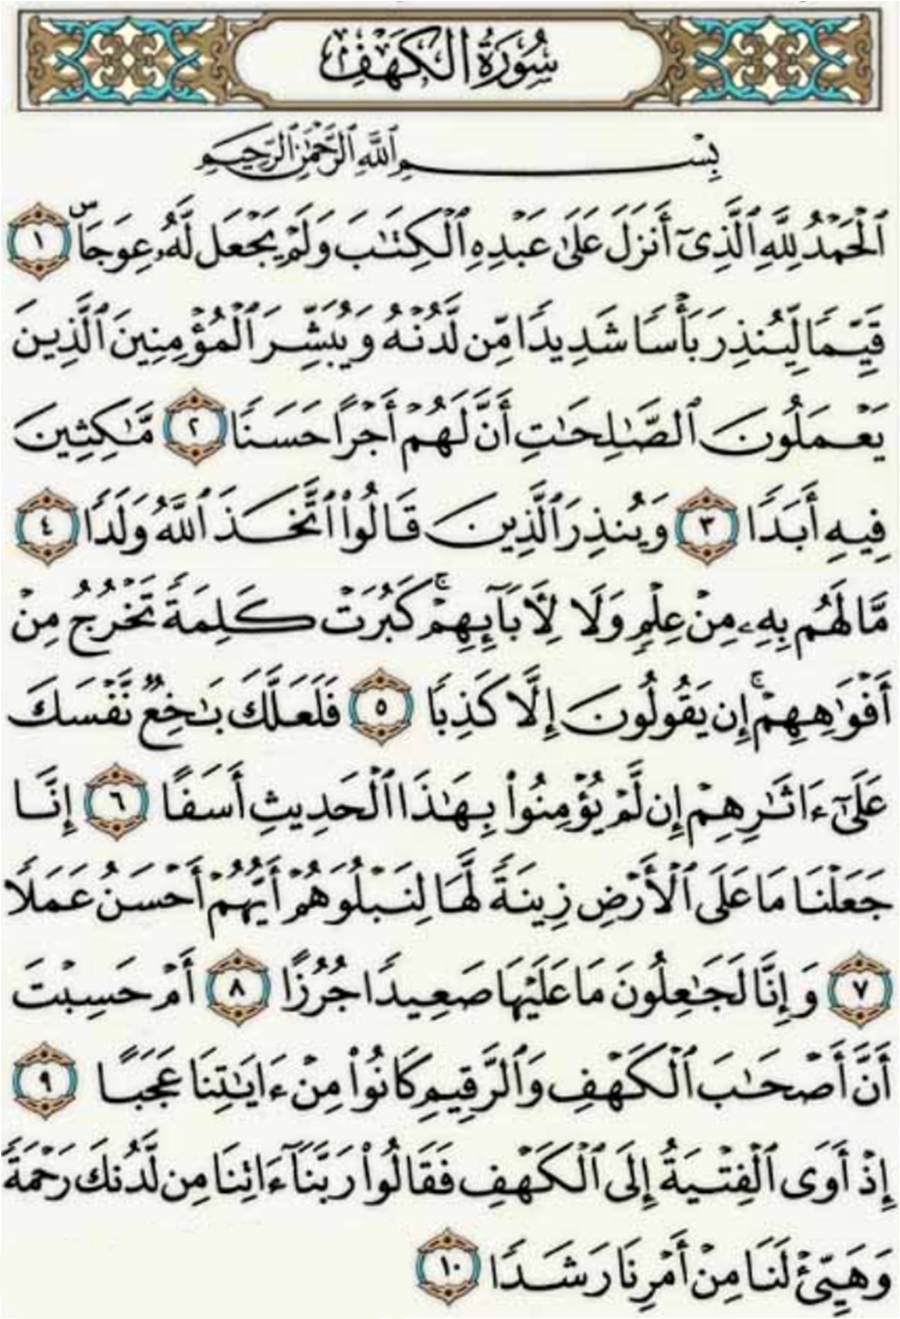 سُورَةُ الكَهْفِ
بِسْمِ ٱللَّهِ ٱلرَّحْمَٰنِ ٱلرَّحِيمِ
ٱلْحَمْدُ لِلَّهِ ٱلَّذِىٓ أَنزَلَ عَلَىٰ عَبْدِهِ ٱلْكِتَٰبَ وَلَمْ يَجْعَل لَّهُۥ عِوَجَاۜ ١
قَيِّمًا لِّيُنذِرَ بَأْسًا شَدِيدًا مِّن لَّدُنْهُ وَيُبَشِّرَ ٱلْمُؤْمِنِينَ ٱلَّذِينَ
يَعْمَلُونَ ٱلصَّٰلِحَٰتِ أَنَّ لَهُمْ أَجْرًا حَسَنًا ٢ مَّٰكِثِينَ
فِيهِ أَبَدًا ٣ وَيُنذِرَ ٱلَّذِينَ قَالُوا۟ ٱتَّخَذَ ٱللَّهُ وَلَدًا ٤
مَّا لَهُم بِهِۦ مِنْ عِلْمٍ وَلَا لِأَبَآئِهِمْ ۚ كَبُرَتْ كَلِمَةً تَخْرُجُ مِنْ
أَفْوَٰهِهِمْ ۚ إِن يَقُولُونَ إِلَّا كَذِبًا ٥ فَلَعَلَّكَ بَٰخِعٌ نَّفْسَكَ
عَلَىٰٓ ءَاثَٰرِهِمْ إِن لَّمْ يُؤْمِنُوا۟ بِهَٰذَا ٱلْحَدِيثِ أَسَفًا ٦ إِنَّا
جَعَلْنَا مَا عَلَى ٱلْأَرْضِ زِينَةً لَّهَا لِنَبْلُوَهُمْ أَيُّهُمْ أَحْسَنُ عَمَلًا
٧ وَإِنَّا لَجَٰعِلُونَ مَا عَلَيْهَا صَعِيدًا جُرُزًا ٨ أَمْ حَسِبْتَ
أَنَّ أَصْحَٰبَ ٱلْكَهْفِ وَٱلرَّقِيمِ كَانُوا۟ مِنْ ءَايَٰتِنَا عَجَبًا ٩
إِذْ أَوَى ٱلْفِتْيَةُ إِلَى ٱلْكَهْفِ فَقَالُوا۟ رَبَّنَآ ءَاتِنَا مِن لَّدُنكَ رَحْمَةً
وَهَيِّئْ لَنَا مِنْ أَمْرِنَا رَشَدًا ١٠